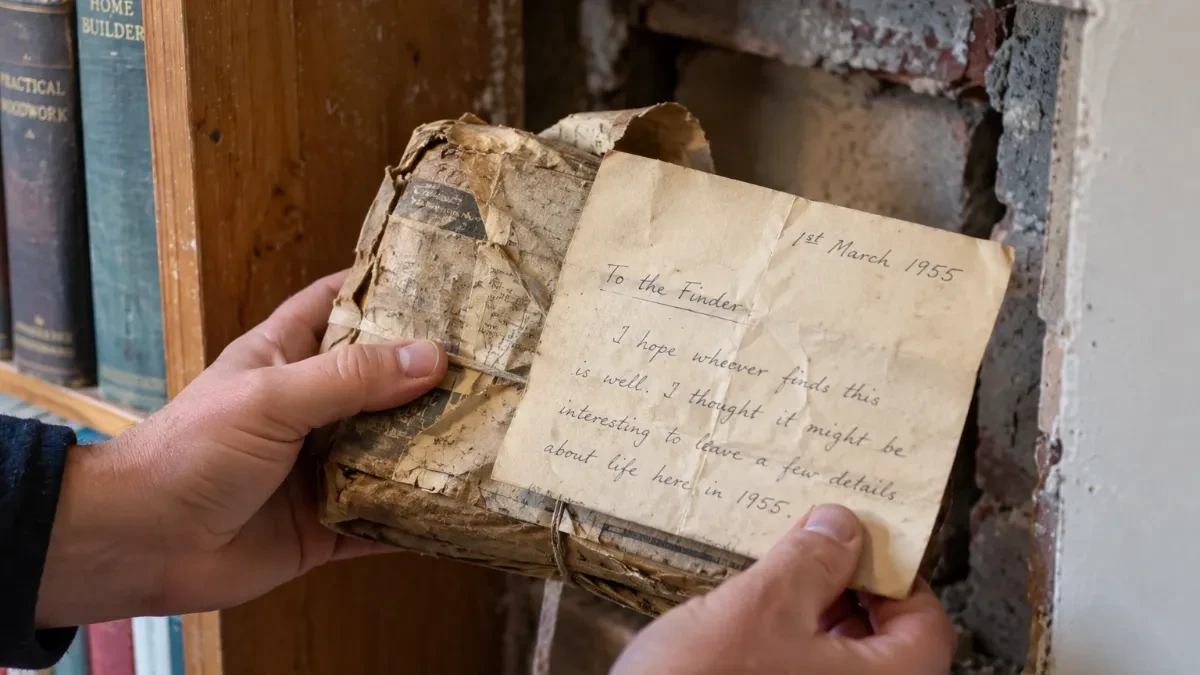 HOME
BUILDER
PRACTICAL
WOODWORK
1st March 1955
To the Finder
I hope wheever finds this
is well. I thought it might be
interesting to leave a few details
about life here in 1955.